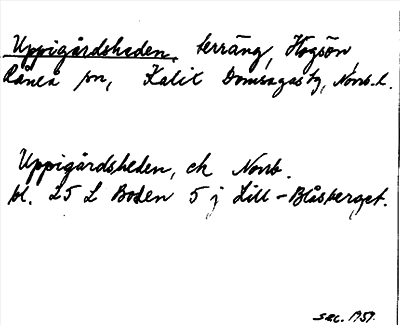 Uppigårdsheden, terräng, Högsön
Råneå sn, Kalix Domsagas tg, Norrb. l.
Uppigårdsheden, ek Norrb.
bl. 25 L Boden 5 j Lill-Blåsberget.
sec. 1959.